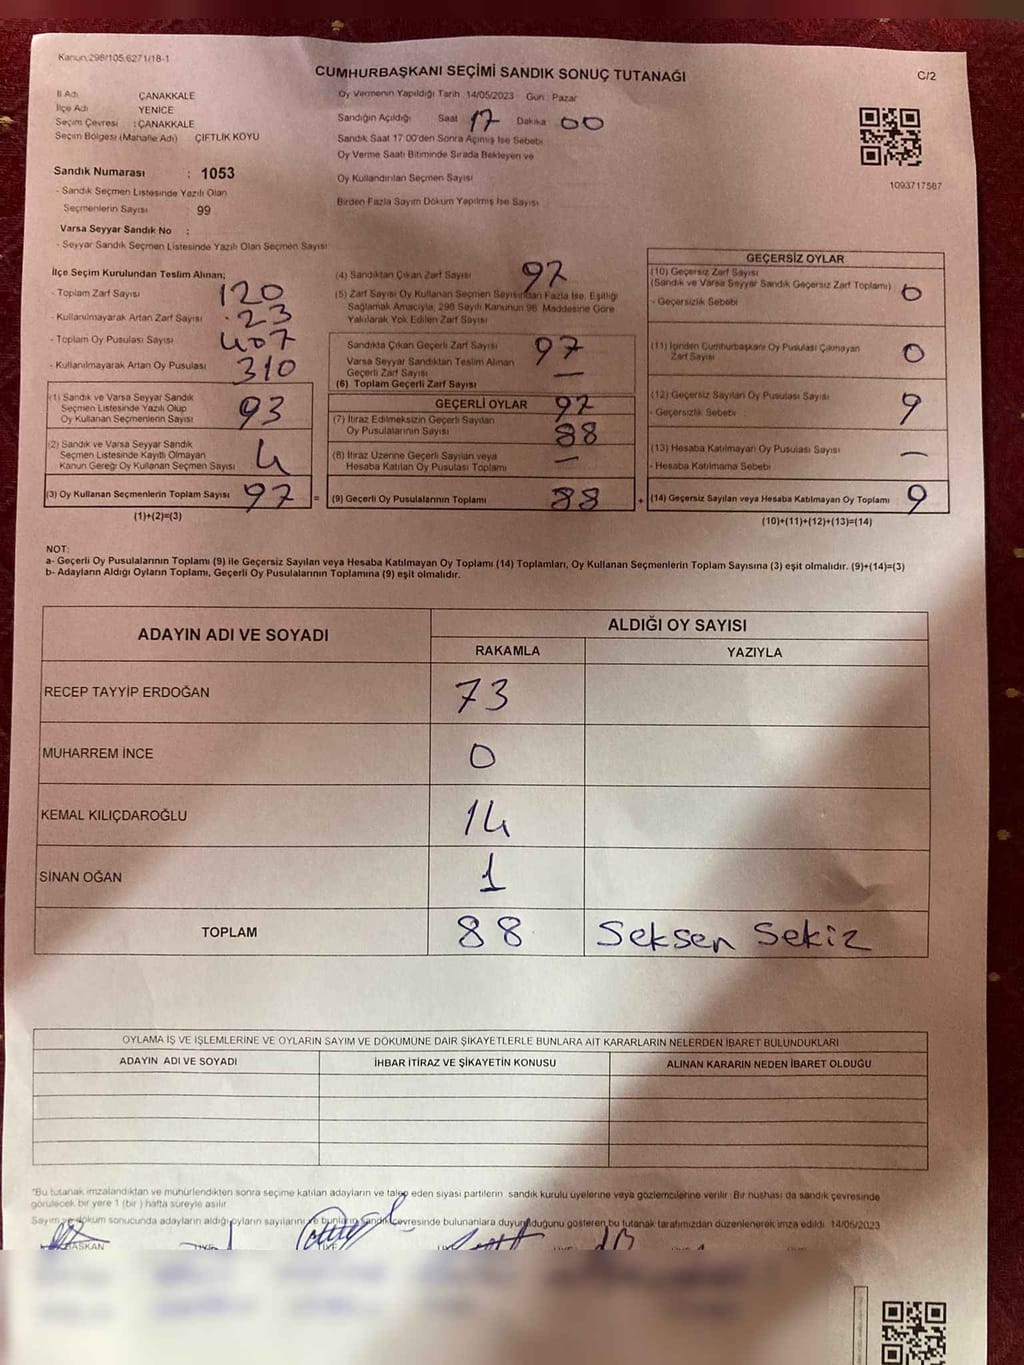 Kanun:298/105,6271/18-1
CUMHURBAŞKANI SEÇİMİ SANDIK SONUÇ TUTANAĞI
C/2
İl Adı : ÇANAKKALE
İlçe Adı YENİCE
Seçim Çevresi : ÇANAKKALE
Seçim Bölgesi (Mahalle Adı) ÇİFTLİK KÖYÜ
Oy Vermenin Yapıldığı Tarih 14/05/2023 Gün: Pazar
Sandığın Açıldığı Saat 17 Dakika 00
Sandık Saat 17.00'den Sonra Açılmış İse Sebebi
Oy Verme Saati Bitiminde Sırada Bekleyen ve
Oy Kullandırılan Seçmen Sayısı
Birden Fazla Sayım Döküm Yapılmış İse Sayısı
1093717587
Sandık Numarası : 1053
- Sandık Seçmen Listesinde Yazılı Olan
Seçmenlerin Sayısı : 99
Varsa Seyyar Sandık No :
- Seyyar Sandık Seçmen Listesinde Yazılı Olan Seçmen Sayısı
İlçe Seçim Kurulundan Teslim Alınan;
- Toplam Zarf Sayısı 120
- Kullanılmayarak Artan Zarf Sayısı 23
- Toplam Oy Pusulası Sayısı 407
- Kullanılmayarak Artan Oy Pusulası 310
(1) Sandık ve Varsa Seyyar Sandık
Seçmen Listesinde Yazılı Olup
Oy Kullanan Seçmenlerin Sayısı 93
(2) Sandık ve Varsa Seyyar Sandık
Seçmen Listesinde Kayıtlı Olmayan
Kanun Gereği Oy Kullanan Seçmen Sayısı 4
(3) Oy Kullanan Seçmenlerin Toplam Sayısı 97 =
(1)+(2)=(3)
(4) Sandıktan Çıkan Zarf Sayısı 97
(5) Zarf Sayısı Oy Kullanan Seçmen Sayısından Fazla İse, Eşitliği
Sağlamak Amacıyla, 298 Sayılı Kanunun 98. Maddesine Göre
Yakılarak Yok Edilen Zarf Sayısı
Sandıkta Çıkan Geçerli Zarf Sayısı 97
Varsa Seyyar Sandıktan Teslim Alınan
Geçerli Zarf Sayısı —
(6) Toplam Geçerli Zarf Sayısı 97
GEÇERLİ OYLAR
(7) İtiraz Edilmeksizin Geçerli Sayılan
Oy Pusulalarının Sayısı 88
(8) İtiraz Üzerine Geçerli Sayılan veya
Hesaba Katılan Oy Pusulası Toplamı —
(9) Geçerli Oy Pusulalarının Toplamı 88 +
GEÇERSİZ OYLAR
(10) Geçersiz Zarf Sayısı
(Sandık ve Varsa Seyyar Sandık Geçersiz Zarf Toplamı) 0
- Geçersizlik Sebebi
(11) İçinden Cumhurbaşkanı Oy Pusulası Çıkmayan
Zarf Sayısı 0
(12) Geçersiz Sayılan Oy Pusulası Sayısı 9
- Geçersizlik Sebebi :
(13) Hesaba Katılmayan Oy Pusulası Sayısı —
- Hesaba Katılmama Sebebi
(14) Geçersiz Sayılan veya Hesaba Katılmayan Oy Toplamı 9
(10)+(11)+(12)+(13)=(14)
NOT:
a- Geçerli Oy Pusulalarının Toplamı (9) ile Geçersiz Sayılan veya Hesaba Katılmayan Oy Toplamı (14) Toplamları, Oy Kullanan Seçmenlerin Toplam Sayısına (3) eşit olmalıdır. (9)+(14)=(3)
b- Adayların Aldığı Oyların Toplamı, Geçerli Oy Pusulalarının Toplamına (9) eşit olmalıdır.
ADAYIN ADI VE SOYADI ALDIĞI OY SAYISI
RAKAMLA YAZIYLA
RECEP TAYYİP ERDOĞAN 73
MUHARREM İNCE 0
KEMAL KILIÇDAROĞLU 14
SİNAN OĞAN 1
TOPLAM 88 Seksen Sekiz
OYLAMA İŞ VE İŞLEMLERİNE VE OYLARIN SAYIM VE DÖKÜMÜNE DAİR ŞİKAYETLERLE BUNLARA AİT KARARLARIN NELERDEN İBARET BULUNDUKLARI
ADAYIN ADI VE SOYADI İHBAR İTİRAZ VE ŞİKAYETİN KONUSU ALINAN KARARIN NEDEN İBARET OLDUĞU
*Bu tutanak imzalandıktan ve mühürlendikten sonra seçime katılan adayların ve talep eden siyasi partilerin sandık kurulu üyelerine veya gözlemcilerine verilir. Bir nüshası da sandık çevresinde
görülecek bir yere 1 (bir ) hafta süreyle asılır.
Sayım ve döküm sonucunda adayların aldığı oyların sayılarını ve bunların sandık çevresinde bulunanlara duyurulduğunu gösteren bu tutanak tarafımızdan düzenlenerek imza edildi. 14/05/2023
BAŞKAN